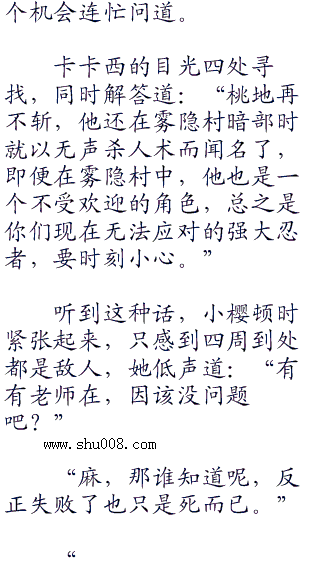 个机会连忙问道。
卡卡西的目光四处寻
找，同时解答道：“桃地再
不斩，他还在雾隐村暗部时
就以无声杀人术而闻名了，
即便在雾隐村中，他也是一
个不受欢迎的角色，总之是
你们现在无法应对的强大忍
者，要时刻小心。”
听到这种话，小樱顿时
紧张起来，只感到四周到处
都是敌人，她低声道：“有
有老师在，因该没问题
吧？”
www.shu008.com
“麻，那谁知道呢，反
正失败了也只是死而已。”
“